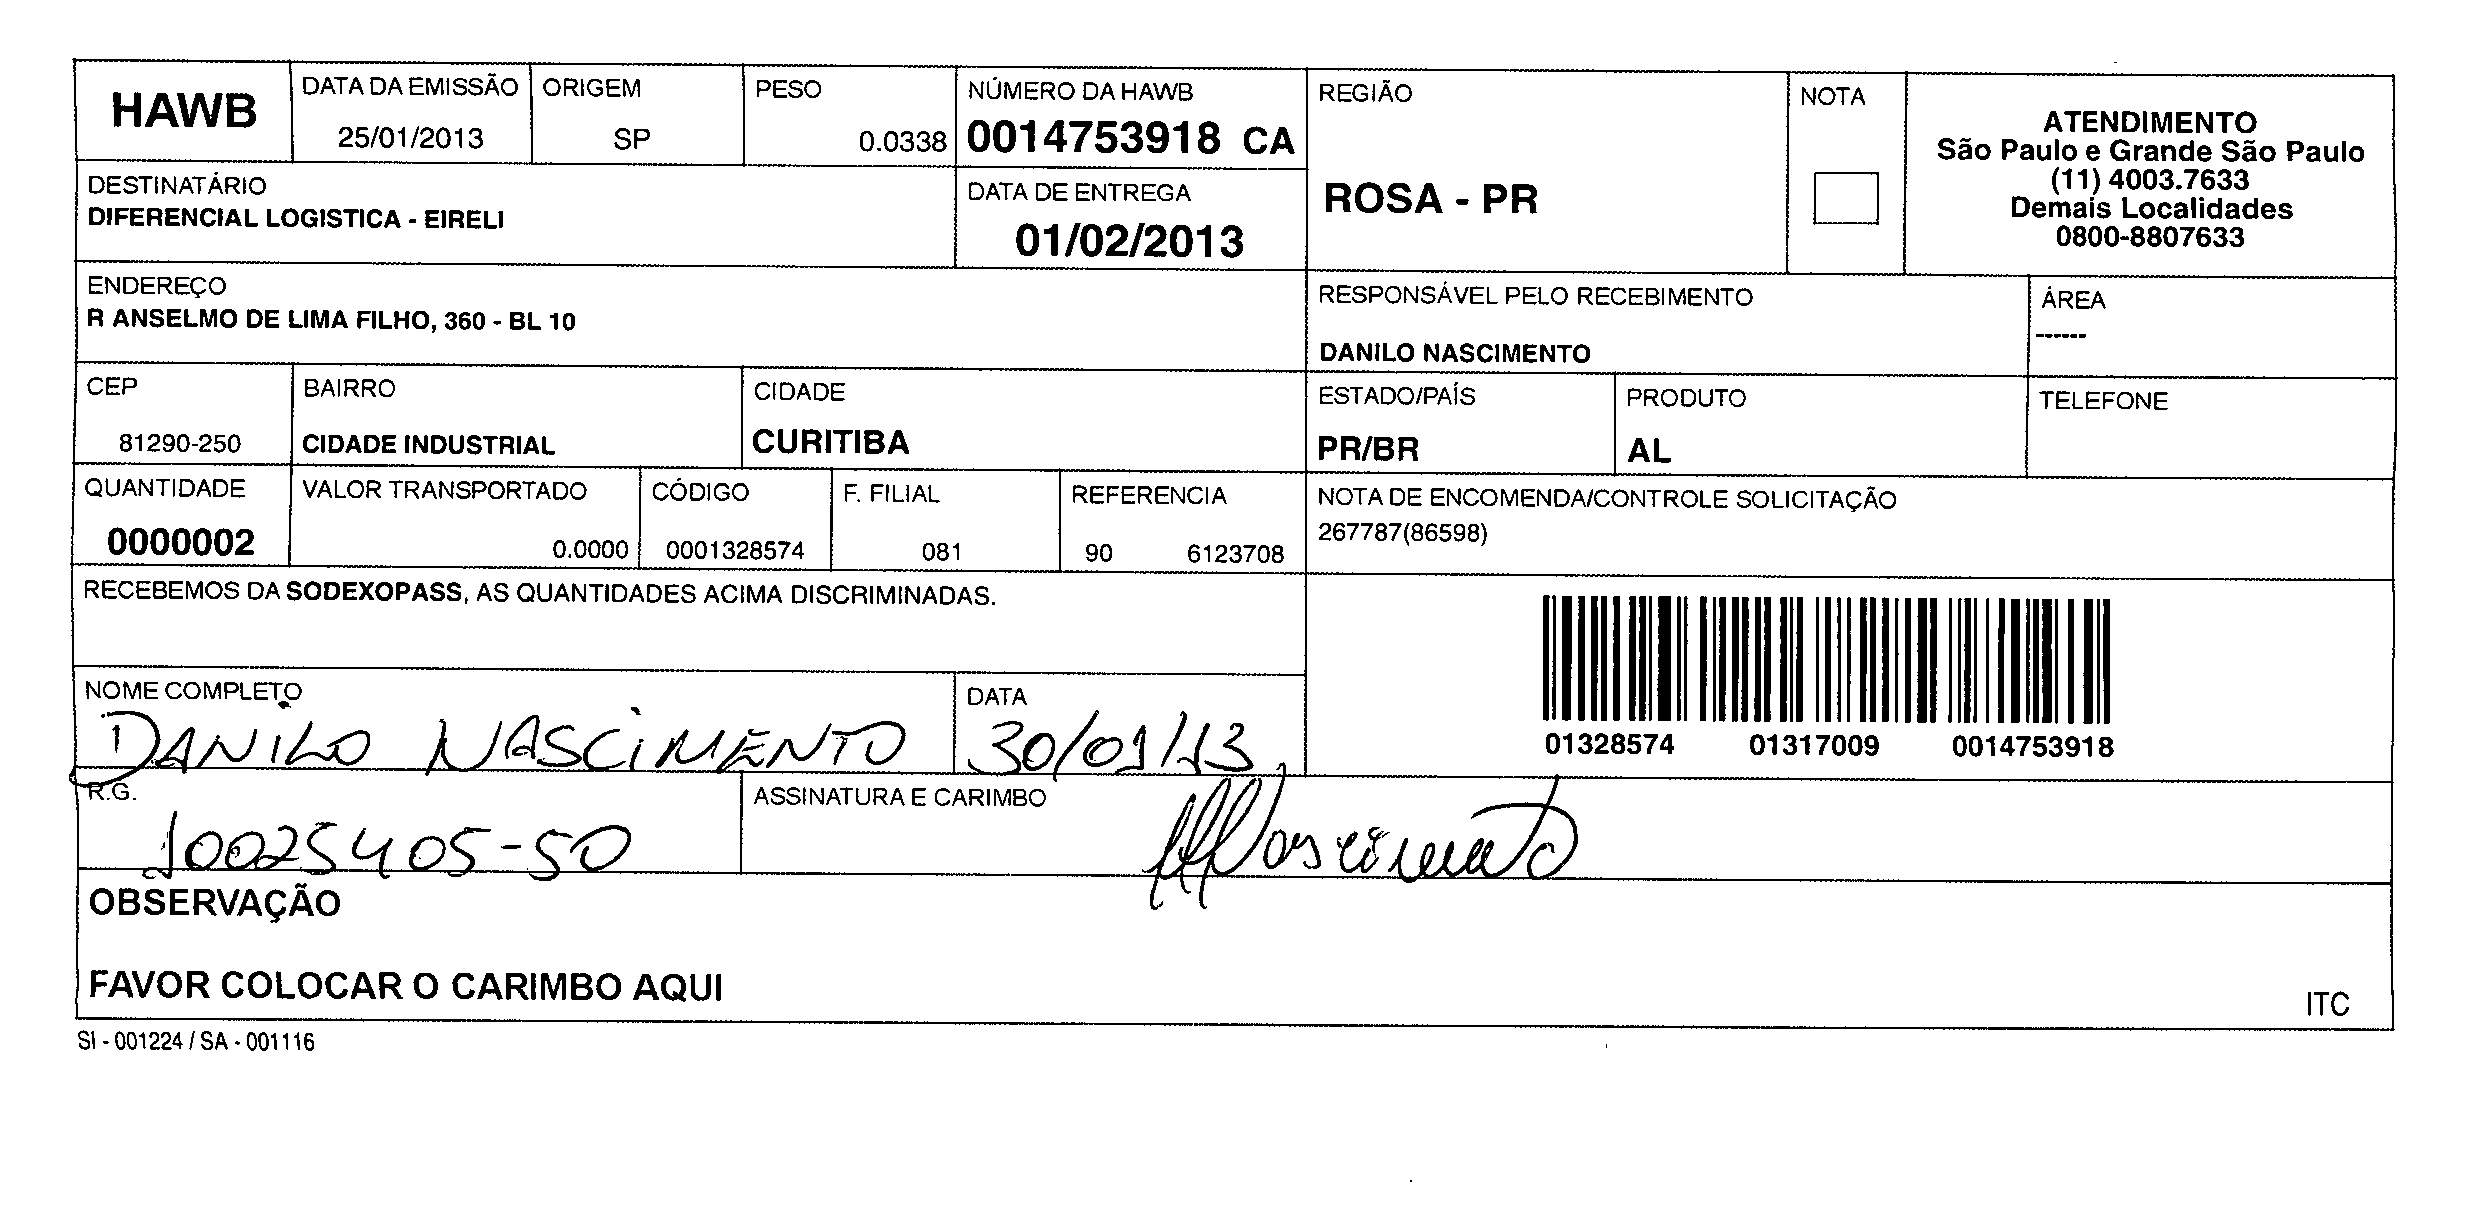 HAWB
DATA DA EMISSÃO
25/01/2013
ORIGEM
SP
PESO
0.0338
NÚMERO DA HAWB
0014753918 CA
REGIÃO
ROSA - PR
NOTA
ATENDIMENTO
São Paulo e Grande São Paulo
(11) 4003.7633
Demais Localidades
0800-8807633
DESTINATÁRIO
DIFERENCIAL LOGISTICA - EIRELI
DATA DE ENTREGA
01/02/2013
ENDEREÇO
R ANSELMO DE LIMA FILHO, 360 - BL 10
RESPONSÁVEL PELO RECEBIMENTO
DANILO NASCIMENTO
ÁREA
------
CEP
81290-250
BAIRRO
CIDADE INDUSTRIAL
CIDADE
CURITIBA
ESTADO/PAÍS
PR/BR
PRODUTO
AL
TELEFONE
QUANTIDADE
0000002
VALOR TRANSPORTADO
0.0000
CÓDIGO
0001328574
F. FILIAL
081
REFERENCIA
90 6123708
NOTA DE ENCOMENDA/CONTROLE SOLICITAÇÃO
267787(86598)
RECEBEMOS DA SODEXOPASS, AS QUANTIDADES ACIMA DISCRIMINADAS.
01328574 01317009 0014753918
NOME COMPLETO
DANILO NASCIMENTO
DATA
30/01/13
R.G.
10025405-50
ASSINATURA E CARIMBO
Nascimento
OBSERVAÇÃO
FAVOR COLOCAR O CARIMBO AQUI
ITC
SI - 001224 / SA - 001116